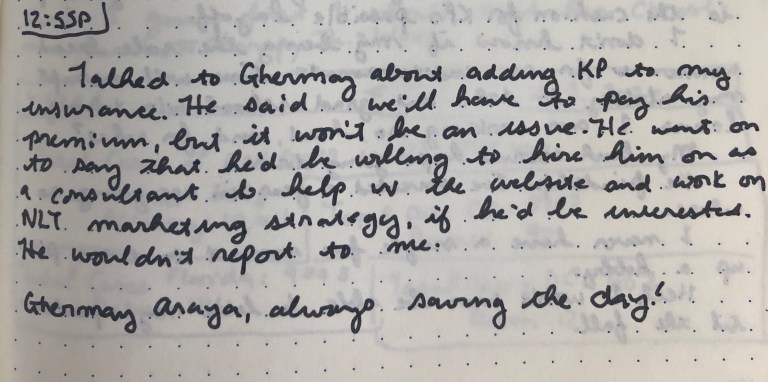 12:55P
Talked to Ghermay about adding KP to my
insurance. He said we'll have to pay his
premium, but it won't be an issue. He went on
to say that he'd be willing to hire him on as
a consultant to help w the website and work on
NLT marketing strategy, if he'd be interested.
He wouldn't report to me.
Ghermay Araya, always saving the day!